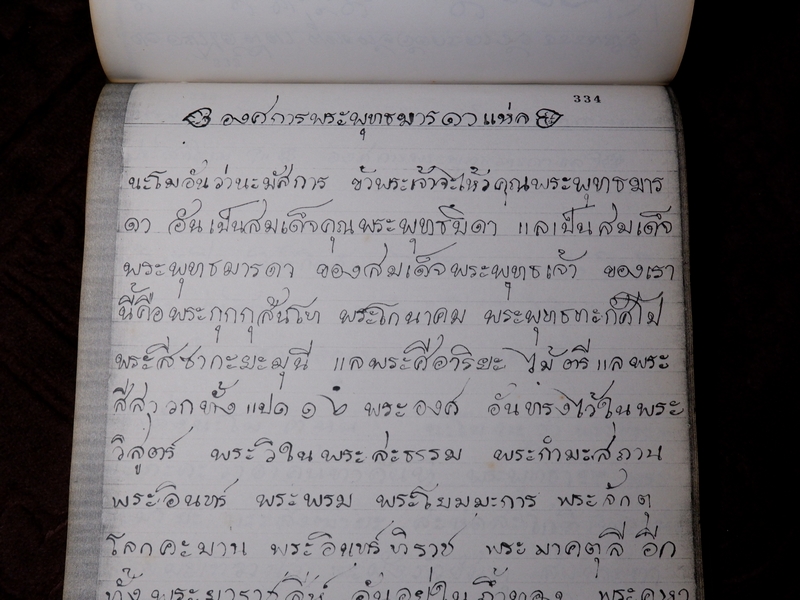 334
องศ์การพระพุทธมารดาแหล
นะโมอันว่านะมัสการ ข้าพระเจ้าจะไหว้คุณพระพุทธมาร
ดา อันเป็นสมเด็จคุณพระพุทธบิดา แลเป็นสมเด็จ
พระพุทธมารดา ของสมเด็จพระพุทธเจ้า ของเรา
นี้คือพระกุกกุสันโท พระโกนาคม พระพุทธทะกัศโป
พระสีซากะยะมุนี แลพระศีอาริยะ ไม้ตรี แลพระ
สีสาวกทั้งแปด ๑๖ พระองค อันทรงไว้ในพระ
วิสูตร์ พระวิในพระสะธรรม พระกำมะสถาน
พระอินทร์ พระพรม พระโยมมะการ พระจักตุ
โลกคะมาน พระอินทร์ทิราช พระมาคตุลี อีก
ทั้งพระ อันอยู่ใน